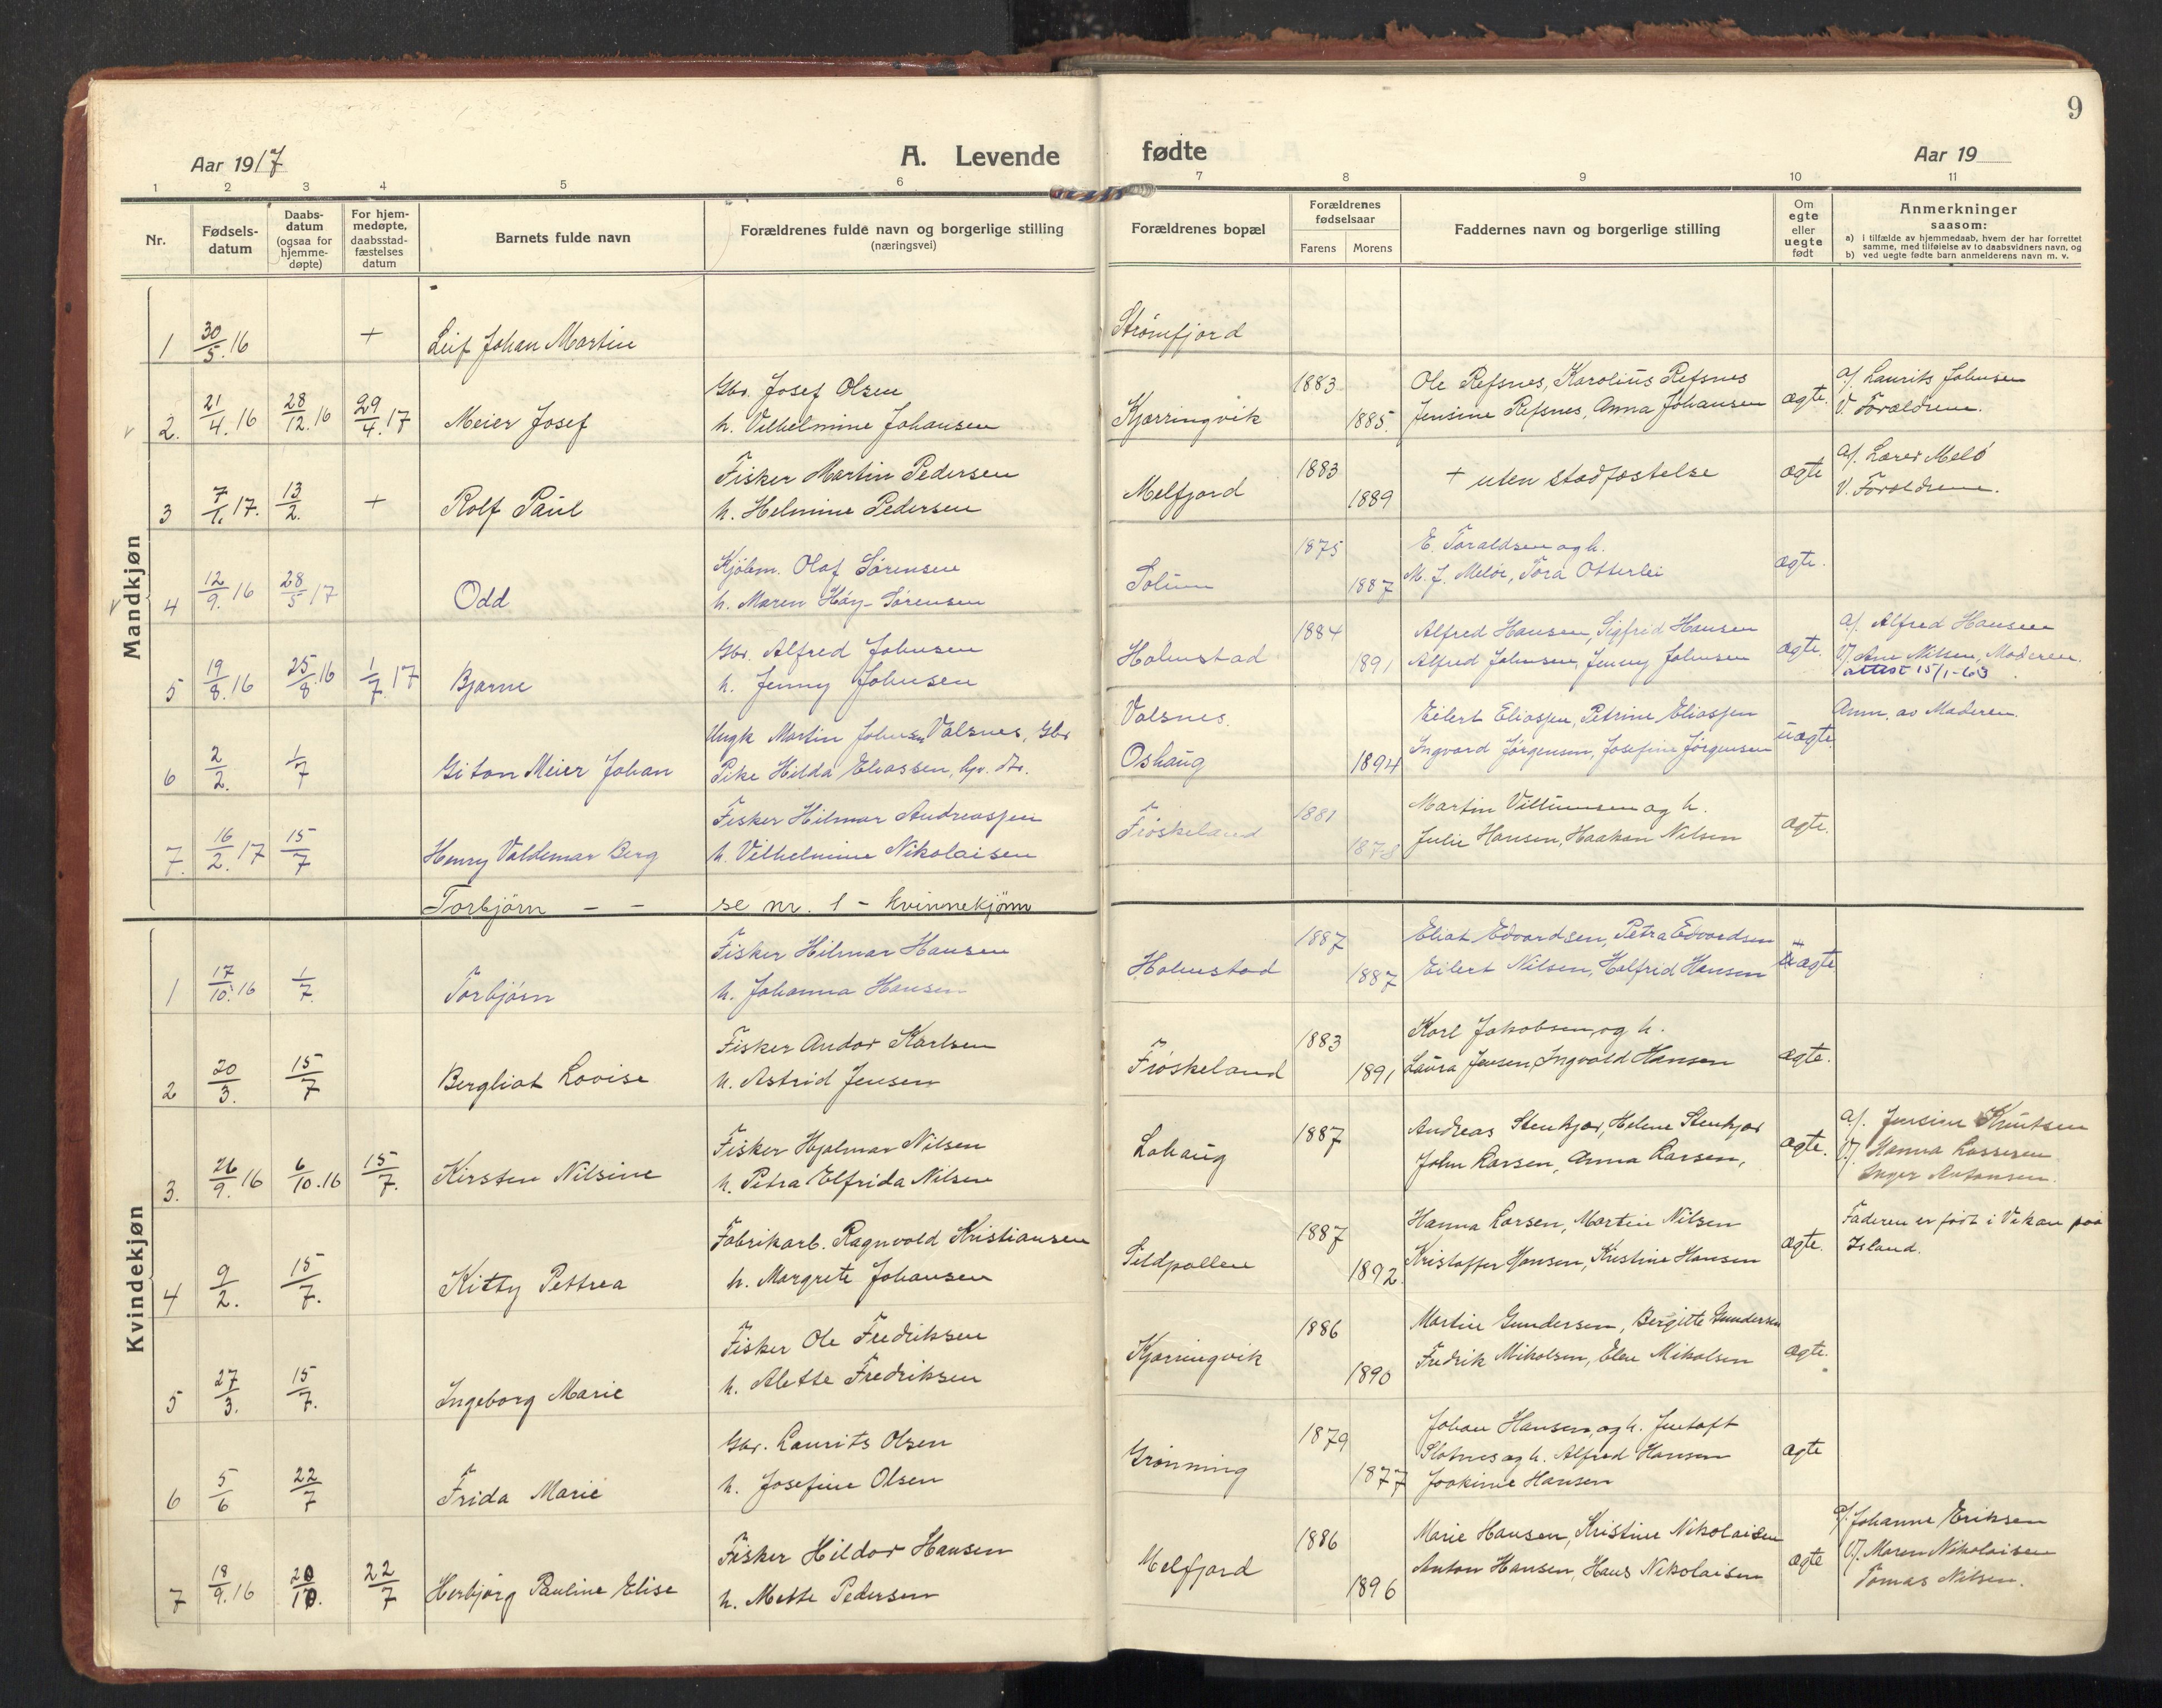 9
Aar 1917 A. Levende fødte Aar 19
1 2 3 4 5 6 7 8 9 10 11
Nr. Fødsels-datum Daabs-datum (ogsaa for hjemme-døpte) For hjem-medøpte, daabsstad-fæstelses datum Barnets fulde navn Forældrenes fulde navn og borgerlige stilling (næringsvei) Forældrenes bopæl Forældrenes fødselsaar Farens Morens Faddernes navn og borgerlige stilling Om egte eller uegte født Anmerkninger saasom:
a) i tilfælde av hjemmedaab, hvem der har forrettet samme, med tilføielse av to daabsvidners navn, og
b) ved uegte fødte barn anmelderens navn m. v.
Mandkjøn
1 30/5.16 + Leif Johan Martin Strømfjord
2. 21/4.16 28/12.16 29/4.17 Meier Josef
Gbr. Josef Olsen
h. Vilhelmine Johansen
Kjærringvik 1883 1885.
Ole Refsnes, Karolius Refsnes
Jensine Refsnes, Anna Johansen
ægte.
a/. Laurits Johnsen
V. Forældrene.
3 7/1.17. 13/2. + Rolf Paul
Fisker Martin Pedersen
h. Helmine Pedersen
Melfjord 1883 1889
+ uten stadfæstelse
ægte
a/. Lærer Melö
V. Forældrene.
4 12/9.16 28/5 17 Odd
Kjøbm. Olaf Sørensen
h. Maren Høy-Sørensen
Solum 1875 1887
E. Toraldsen og h.
M. J. Meløe, Tora Otterlei
ægte.
5 19/8.16 25/8.16 1/7.17 Bjarne
Gbr. Alfred Johnsen
h. Jenny Johnsen
Holmstad 1884 1891
Alfred Hansen, Sigfrid Hansen
Alfred Johnsen, Jenny Johnsen
ægte.
a/. Alfred Hansen
V/. Ane Nilsen, Moderen.
attest 15/1-63
6 2/2. 1/7 Giton Meier Johan
Ungk Martin Johnsen Valsnes, Gbr
Pike Hilda Eliassen, hjv. dtr.
Valsnes.
Oshaug 1894
Eilert Eliassen, Petrine Eliassen
Ingvard Jørgensen, Josefine Jørgensen
uægte.
Anm. av Moderen.
7. 16/2.17 15/7 Henry Valdemar Berg
Fisker Hilmar Andreassen
h. Vilhelmine Nikolaisen
Frøskeland 1881 1878
Martin Villumsen og h.
Julie Hansen, Haakon Nilsen
ægte.
Torbjörn - - se nr. 1 - kvinnekjønn
Kvindekjøn
1 17/10.16 1/7. Torbjørn
Fisker Hilmar Hansen
h. Johanna Hansen
Holmstad 1887 1887
Eliat Edvardsen, Petra Edvardsen
Eilert Nilsen, Halfrid Hansen
ægte
2 20/3. 15/7 Bergliot Lovise
Fisker Andor Karlsen
h. Astrid Jensen
Frøskeland 1883 1891
Karl Jakobsen og h.
Laura Jensen, Ingvald Hansen
ægte.
3. 26/9.16 6/10.16 15/7. Kirsten Nilsine
Fisker Hjalmar Nilsen
h. Petra Elfrida Nilsen
Lahaug 1887
Andreas Stenkjær, Helene Stenkjær
John Larsen, Anna Larsen,
ægte.
a/. Jensine Knutsen
V/. Hanna Lassesen
Inger Antonsen.
4 9/2. 15/7. Kitty Pettrea
Fabrikarb. Ragnvald Kristiansen
h. Margrete Johansen
Sildpollen 1887 1892
Hanna Larsen, Martin Nilsen
Kristoffer Hansen, Kristine Hansen
ægte.
Faderen er født i Vikan paa
Island.
5 27/3. 15/7. Ingeborg Marie
Fisker Ole Fredriksen
h. Alette Fredriksen
Kjærringvik 1886 1890
Martin Gundersen, Bergitte Gundersen
Fredrik Mikalsen, Elen Mikalsen
ægte.
6 5/6 22/7 Frida Marie
Gbr. Laurits Olsen
h. Josefine Olsen
Grønning 1879 1877
Johan Hansen og h. Jentoft
Slotnes og h. Alfred Hansen
Joakime Hansen
ægte
7 18/9.16 20/10. 22/7 Herbjørg Pauline Elise
Fisker Hildor Hansen
h. Mette Pedersen
Melfjord 1886 1896
Marie Hansen, Kristine Nikolaisen
Anton Hansen, Hans Nikolaisen
ægte
a/. Johanne Eriksen
V/. Maren Nikolaisen
Tomas Nilsen.